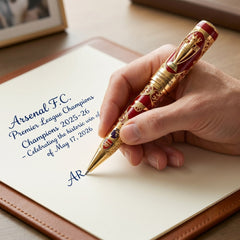 Arsenal F.C.
Premier League Champions
Champions 2025-26
- Celebrating the historic win of
of May 17, 2026
AR